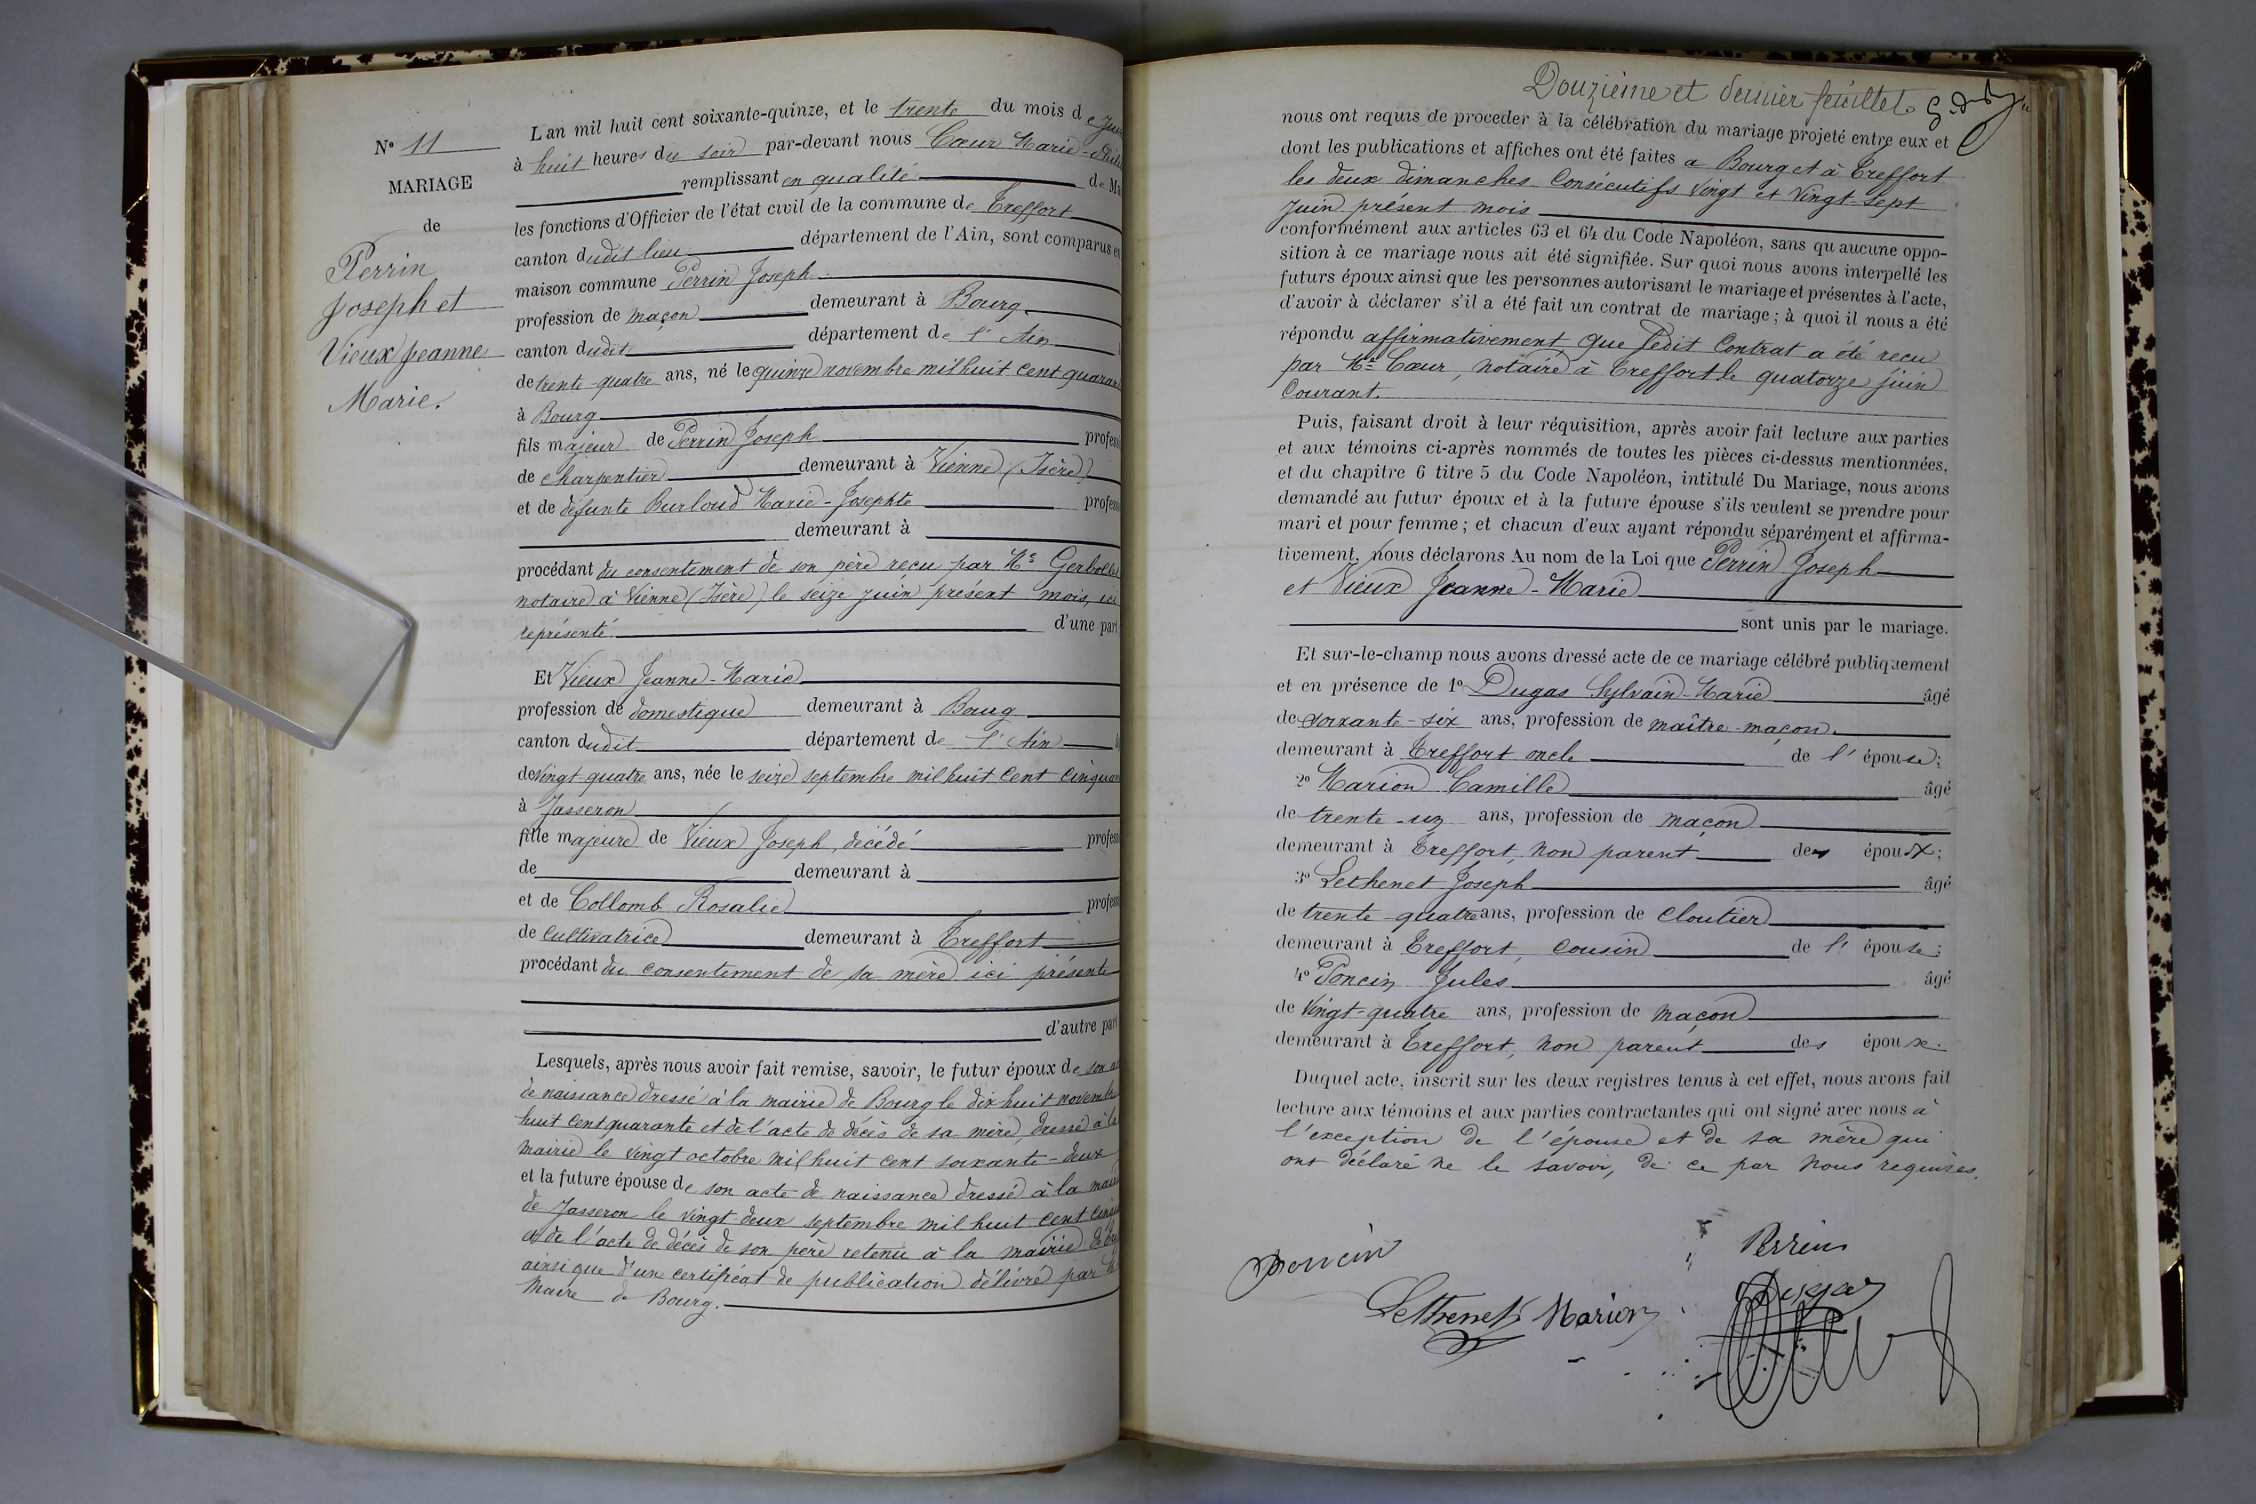 N° 11
MARIAGE
de
Perrin
Joseph et
Vieux Jeanne
Marie.
L'an mil huit cent soixante-quinze, et le trente du mois de Juin
à huit heures du soir par-devant nous Cœur Marie
remplissant en qualité de
les fonctions d'Officier de l'état civil de la commune de Treffort
canton dudit lieu département de l'Ain, sont comparus en
maison commune Perrin Joseph
profession de maçon demeurant à Bourg
canton dudit département de l'Ain
de trente-quatre ans, né le quinze novembre mil huit cent
à Bourg
fils majeur de Perrin Joseph
de charpentier demeurant à Vienne (Isère)
et de défunte Burloud Marie-Josephte
demeurant à
procédant du consentement de son père recu par Me
notaire à Vienne (Isère) le seize juin présent mois, ici
représenté d'une part
Et Vieux Jeanne-Marie
profession de domestique demeurant à Bourg
canton dudit département de l'Ain
de vingt quatre ans, née le seize septembre mil huit cent
à Jasseron
fille majeure de Vieux Joseph, décédé
de demeurant à
et de Collomb Rosalie
de cultivatrice demeurant à Treffort
procédant du consentement de sa mère ici présente
d'autre part
Lesquels, après nous avoir fait remise, savoir, le futur époux de son
de naissance dressé à la mairie de Bourg le dix huit novembre
huit cent quarante et de l'acte de décès de sa mère, dressé à la
mairie le vingt octobre mil huit cent soixante-deux
et la future épouse de son acte de naissance dressé à la
de Jasseron le vingt deux septembre mil huit cent
de l'acte de décès de son père retenu à la mairie de
ainsi que d'un certificat de publication délivré par
Maire de Bourg.
Douzième et dernier feuillet
nous ont requis de procéder à la célébration du mariage projeté entre eux et
dont les publications et affiches ont été faites à Bourg et à Treffort
les deux dimanches consécutifs vingt et vingt-sept
juin présent mois
conformément aux articles 63 et 64 du Code Napoléon, sans qu'aucune oppo-
sition à ce mariage nous ait été signifiée. Sur quoi nous avons interpellé les
futurs époux ainsi que les personnes autorisant le mariage et présentes à l'acte,
d'avoir à déclarer s'il a été fait un contrat de mariage ; à quoi il nous a été
répondu affirmativement que ledit contrat a été recu
par Me Cœur, notaire à Treffort le quatorze juin
courant.
Puis, faisant droit à leur réquisition, après avoir fait lecture aux parties
et aux témoins ci-après nommés de toutes les pièces ci-dessus mentionnées,
et du chapitre 6 titre 5 du Code Napoléon, intitulé Du Mariage, nous avons
demandé au futur époux et à la future épouse s'ils veulent se prendre pour
mari et pour femme ; et chacun d'eux ayant répondu séparément et affirma-
tivement, nous déclarons Au nom de la Loi que Perrin Joseph
et Vieux Jeanne-Marie
sont unis par le mariage.
Et sur-le-champ nous avons dressé acte de ce mariage célébré publiquement
et en présence de 1° Dugas Sylvain-Marie âgé
de soixante-six ans, profession de maître-maçon
demeurant à Treffort oncle de l'épouse ;
2° Marion Camille âgé
de trente-un ans, profession de maçon
demeurant à Treffort, non parent des époux ;
3° Lethenet Joseph âgé
de trente-quatre ans, profession de cloutier
demeurant à Treffort, cousin de l'épouse ;
4° Poncin Jules âgé
de vingt-quatre ans, profession de maçon
demeurant à Treffort, non parent des époux.
Duquel acte, inscrit sur les deux registres tenus à cet effet, nous avons fait
lecture aux témoins et aux parties contractantes qui ont signé avec nous à
l'exception de l'épouse et de sa mère qui
ont déclaré ne le savoir, de ce par nous requises.
Poncin
Perrin
Dugas
Lethenet Marion